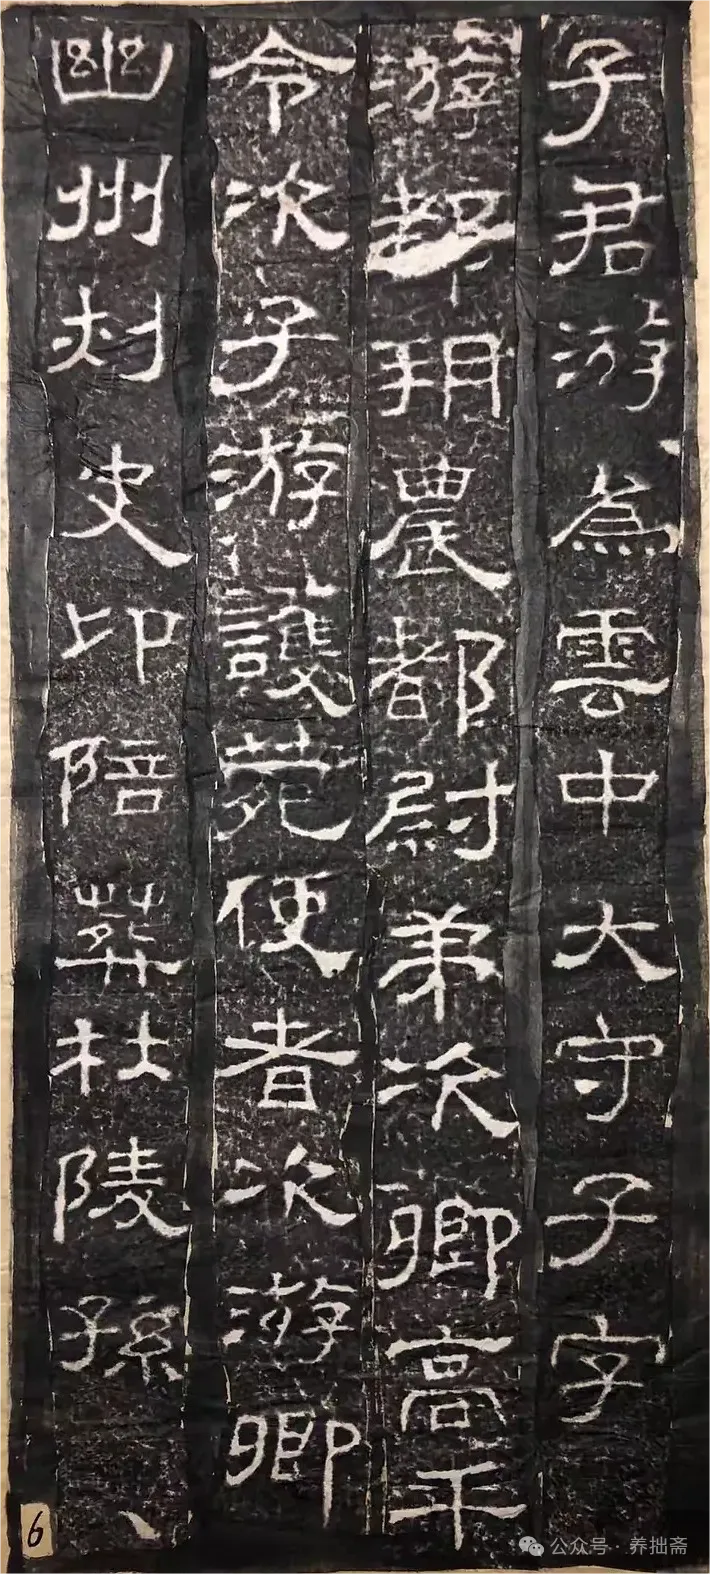 子君游為雲中大守子字
游都朔農都尉弟次卿高平
令次子游護菀使者次游卿
幽州刺史印陪葬杜陵孫
6
公众号·养拙斋